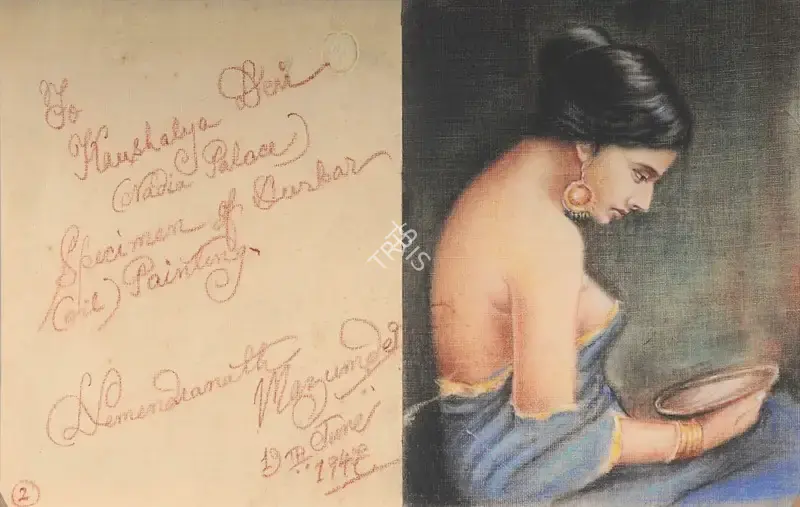 To
Kaushalya Devi
(Nadia Palace)
Specimen of Durbar
(oil) Painting.
Hemendranath
Mazumder
19TH June
194
2
TRIBIS